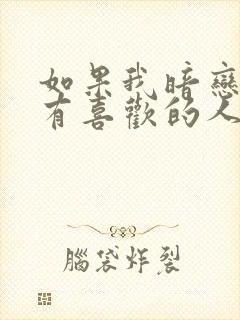 如果我暗戀
有喜歡的人
腦袋炸裂